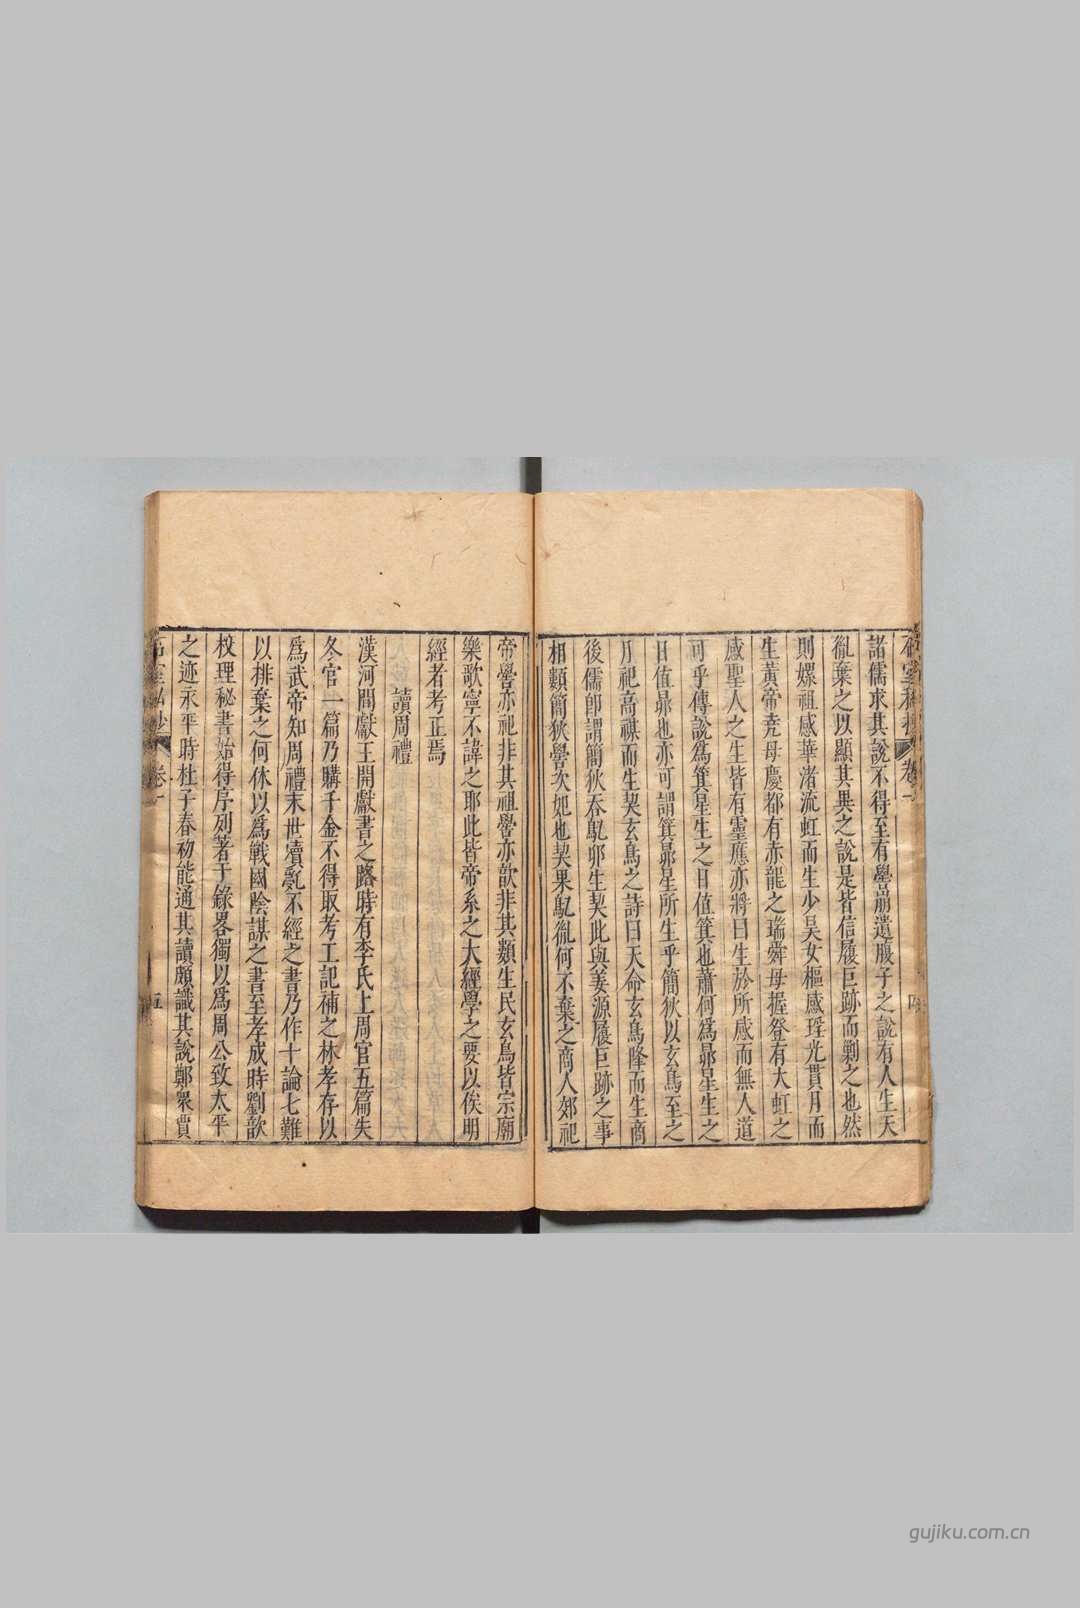 諸儒求其說不得至有擧前遺腹子之說有人生天
亂棄之以顯其異之說是皆信履巨跡而剿之也然
則嫘祖感華渚流虹而生少昊女樞感瑶光貫月而
生黃帝堯母慶都有赤龍之瑞舜母握登有大虹之
感聖人之生皆有靈應亦將曰生於所感而無人道
可乎傳說爲箕星生之日值箕也蕭何爲昴星生之
日值昴也亦可謂箕昴星所生乎簡狄以玄鳥至之
月祀高禖而生契玄鳥之詩曰天命玄鳥降而生商
後儒卽謂簡狄吞鳦卵生契此與姜源履巨跡之事
相類簡狄嚳次妃也契果鳦亂何不棄之商人郊祀
卷一
四
帝嚳亦祀非其祖嚳亦歆非其類生民玄鳥皆宗廟
樂歌寧不諱之耶此皆帝系之大經學之要以俟明
經者考正焉
讀周禮
漢河間獻王開獻書之路時有李氏上周官五篇失
冬官一篇乃購千金不得取考工記補之林孝存以
爲武帝知周禮末世瀆亂不經之書乃作十論七難
以排棄之何休以爲戰國陰謀之書至孝成時劉歆
校理秘書始得序列著于錄畧獨以爲周公致太平
之迹永平時杜子春初能通其讀頗識其說鄭眾賈
卷一
五
gujiku.com.cn